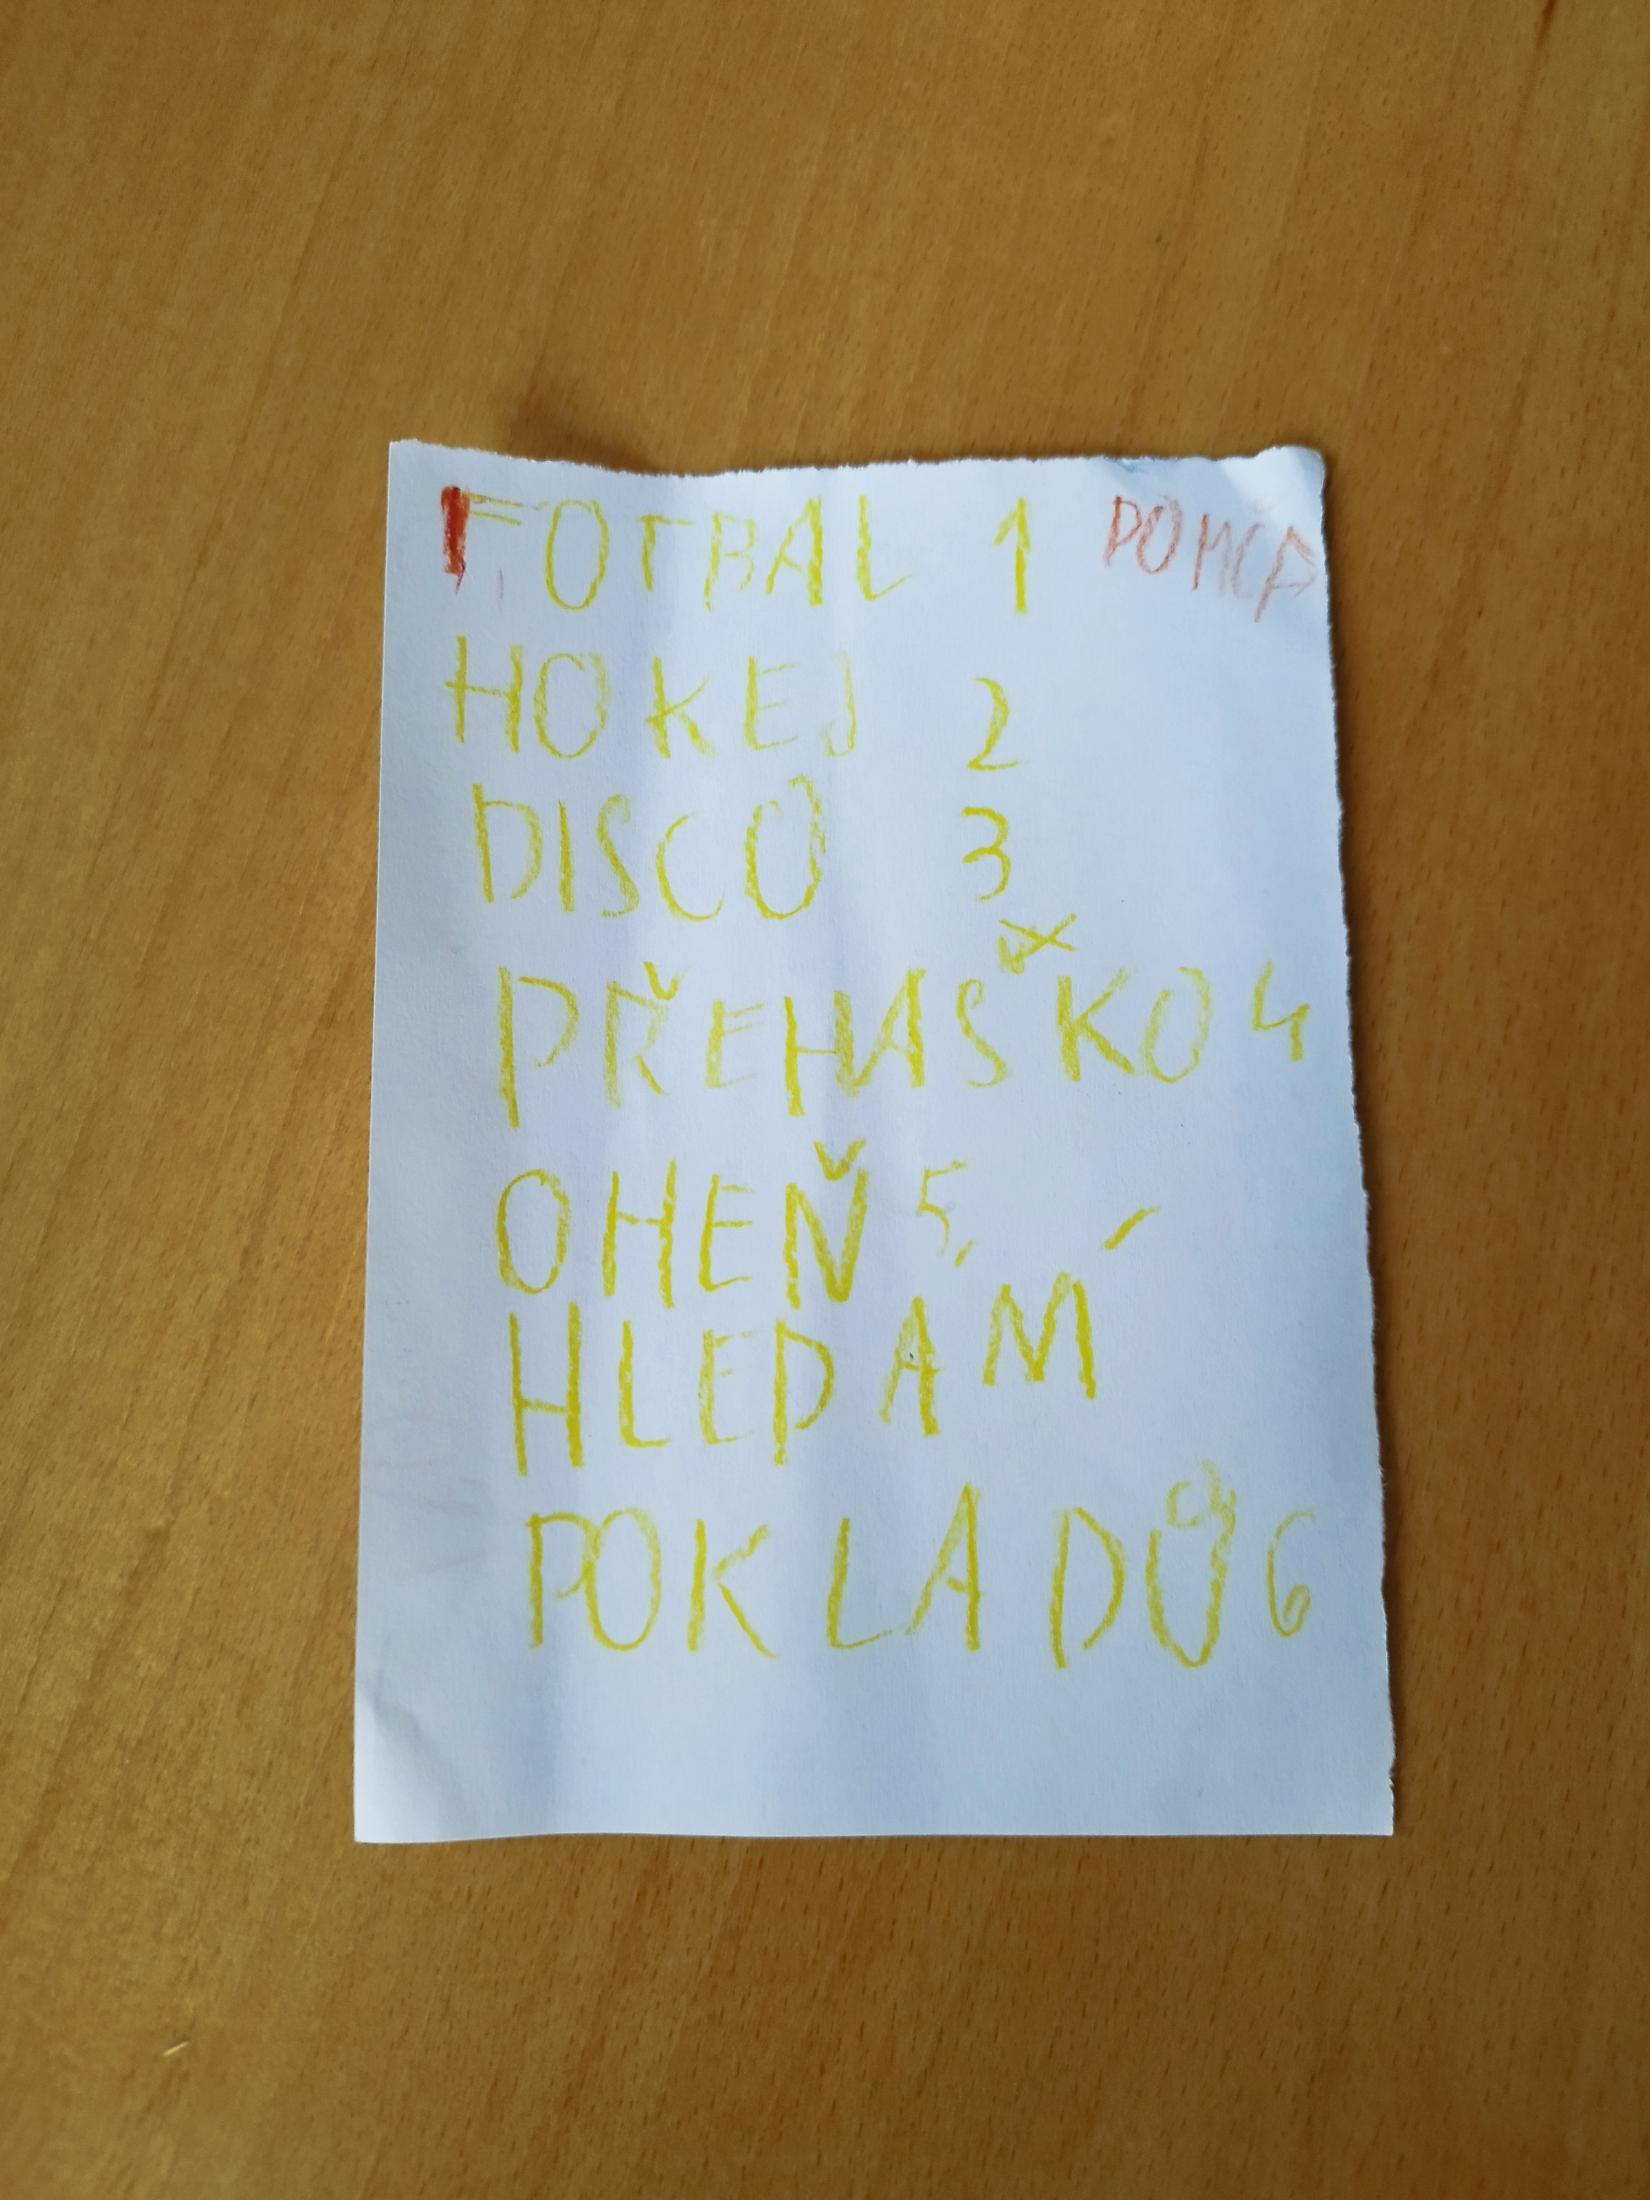 FOTBAL 1
HOKEJ 2
DISCO 3
PŘEHAŠKO 4
OHEŇ 5
HLEDAM
POKLADŮ 6